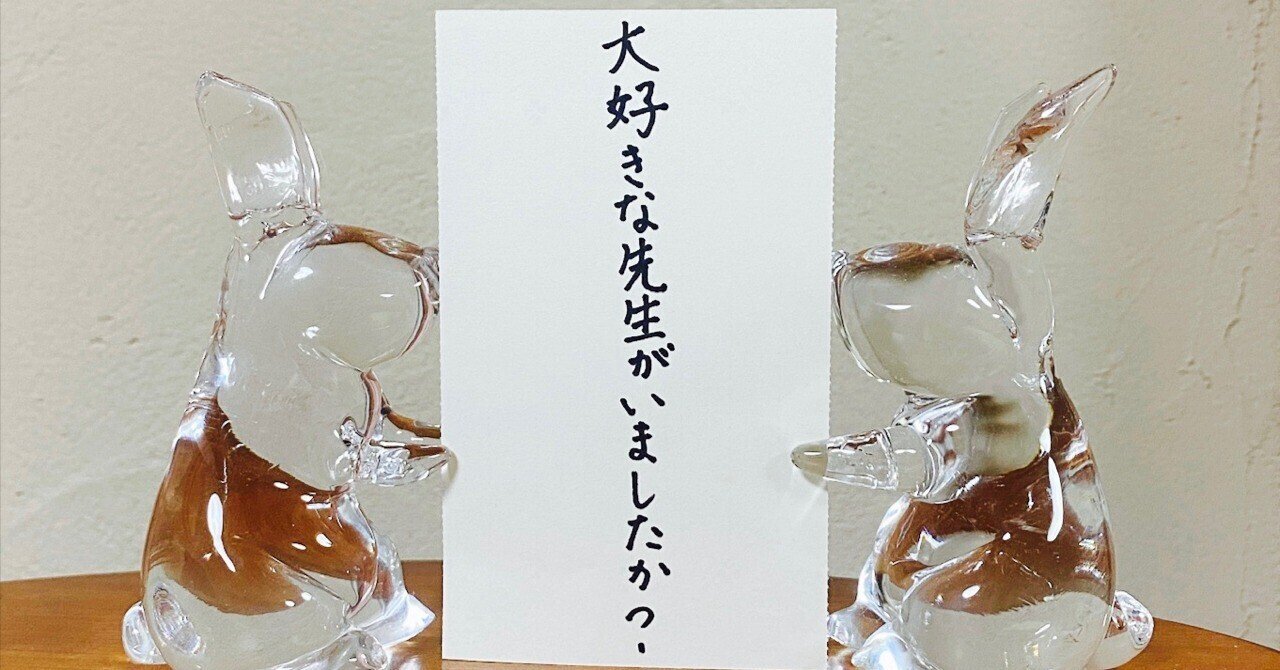 大好きな先生がいましたか?